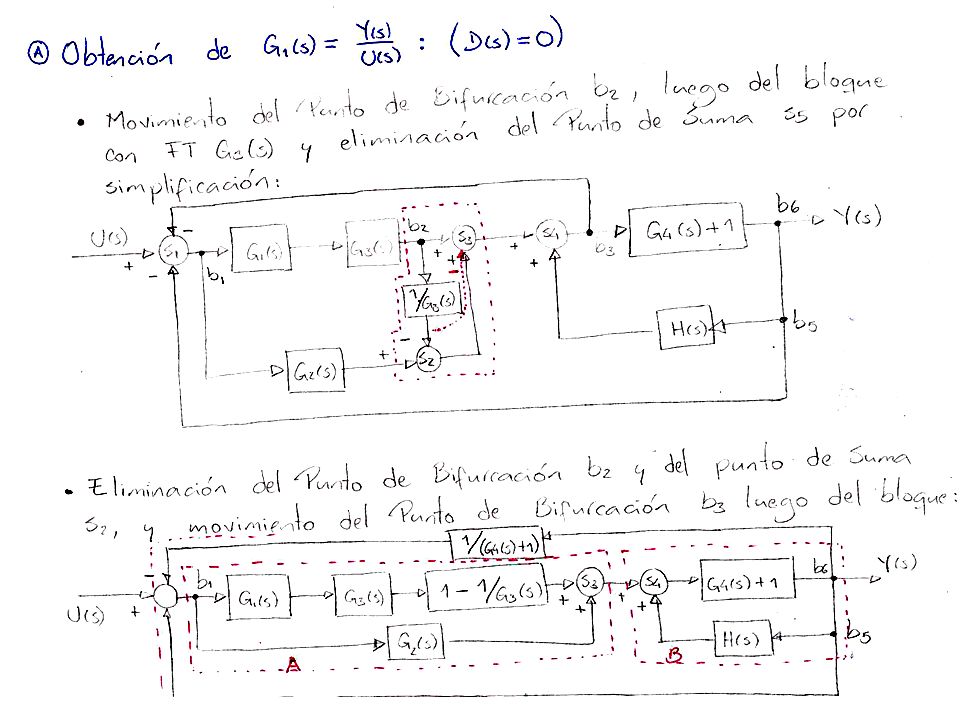 Ⓐ Obtención de G₁(s) = Y(s)/U(s) : (D(s)=0)
• Movimiento del Punto de Bifurcación b₂, luego del bloque
con FT G₃(s) y eliminación del Punto de Suma S5 por
simplificación:
U(s) + − − S₁ b₁ G₁(s) G₃(s) b₂ + S₃ + S₄ b₃ G₄(s)+1 b6 Y(s)
1/G₃(s) + −
+ − S₂ + H(s) b₅
G₂(s)
• Eliminación del Punto de Bifurcación b₂ y del punto de Suma
S₂, y movimiento del Punto de Bifurcación b₃ luego del bloque:
1/(G₄(s)+1)
U(s) + − b₁ G₁(s) G₃(s) 1 − 1/G₃(s) + S₃ + S₄ G₄(s)+1 b₆ Y(s)
G₂(s) + + H(s) b₅
A B